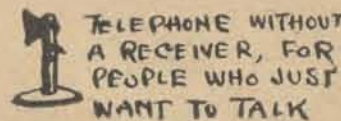 TELEPHONE WITHOUT
A RECEIVER, FOR
PEOPLE WHO JUST
WANT TO TALK